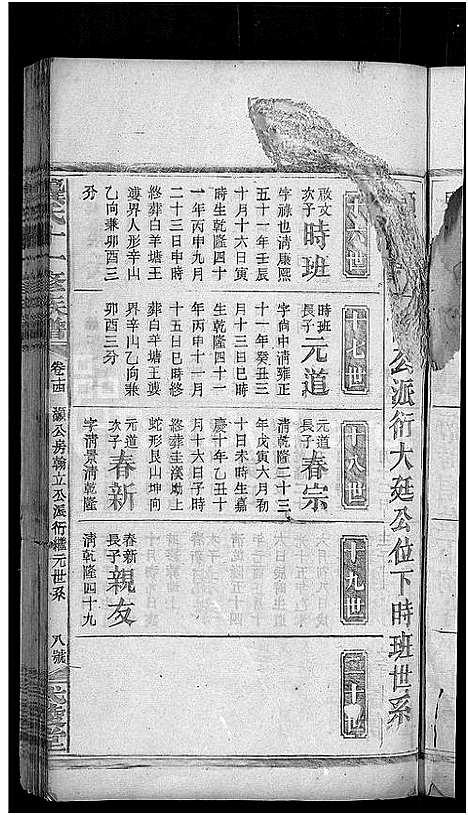 公派衍大廷公位下時班世系
十六世
啟文
次子
時班
字祿也清康熙
五十一年壬辰
十月十六日寅
時生乾隆四十
一年丙申九月
二十三日申時
終葬白羊塘王
壟界人形辛山
乙向兼卯酉三
分
十七世
時班
長子
元道
字尚中清雍正
十一年癸丑三
月十三日巳時
生乾隆四十一
年丙申十一月
十五日巳時終
葬白羊塘王壟
界辛山乙向兼
卯酉三分
十八世
元道
長子
春宗
清乾隆二十三
年戊寅六月初
十日未時生嘉
慶十年乙丑十
月十六日子時
終葬圭漢塅上
蛇形艮山坤向
元道
次子
春新
字清景清乾隆
十九世
春新
長子
親友
清乾隆四十九
二十世
氏十一修族譜
卷十四
灝公房翰立公派衍繼元世系
八號